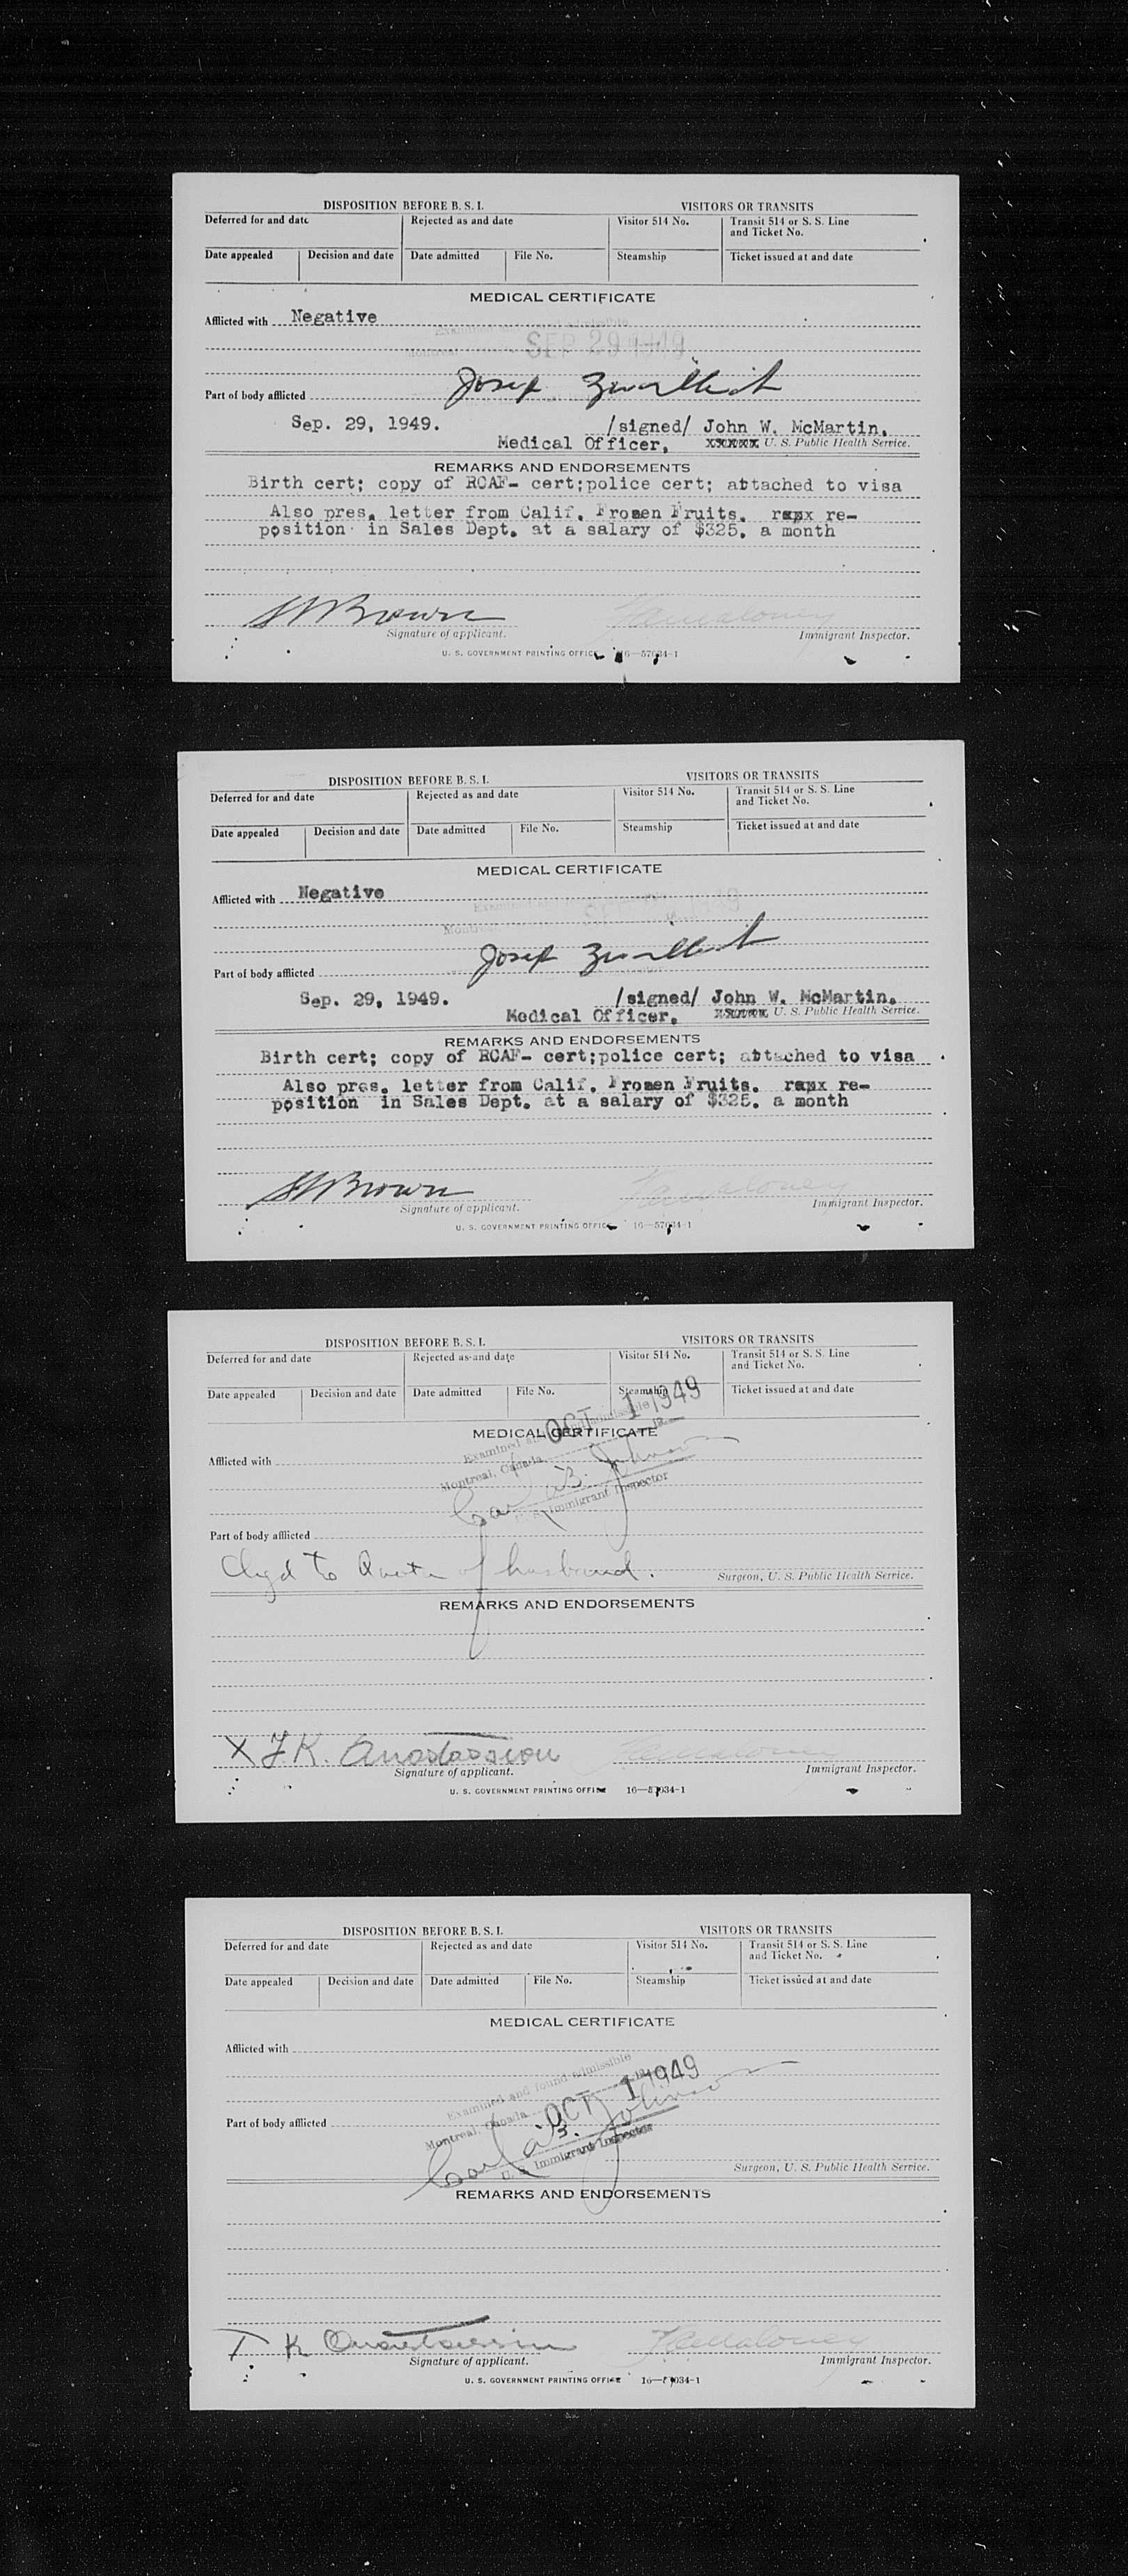 DISPOSITION BEFORE B. S. I. VISITORS OR TRANSITS
Deferred for and date Rejected as and date Visitor 514 No. Transit 514 or S. S. Line and Ticket No.
Date appealed Decision and date Date admitted File No. Steamship Ticket issued at and date
MEDICAL CERTIFICATE
Afflicted with Negative
Examined admissible
Montreal SEP 29 1949
Josep
Part of body afflicted
Sep. 29, 1949. /signed/ John W. McMartin.
Medical Officer, xxxxx U. S. Public Health Service.
REMARKS AND ENDORSEMENTS
Birth cert; copy of RCAF- cert;police cert; attached to visa
Also pres. letter from Calif. Fromen Fruits. rapx re-
position in Sales Dept. at a salary of $325. a month
Brown
Signature of applicant. Immigrant Inspector.
U. S. GOVERNMENT PRINTING OFFICE 16—57034-1
DISPOSITION BEFORE B. S. I. VISITORS OR TRANSITS
Deferred for and date Rejected as and date Visitor 514 No. Transit 514 or S. S. Line and Ticket No.
Date appealed Decision and date Date admitted File No. Steamship Ticket issued at and date
MEDICAL CERTIFICATE
Afflicted with Negative
Examined
Montreal
Josep
Part of body afflicted
Sep. 29, 1949. /signed/ John W. McMartin.
Medical Officer, xxxxx U. S. Public Health Service.
REMARKS AND ENDORSEMENTS
Birth cert; copy of RCAF- cert;police cert; attached to visa
Also pres. letter from Calif. Fromen Fruits. rapx re-
position in Sales Dept. at a salary of $325. a month
Brown
Signature of applicant. Immigrant Inspector.
U. S. GOVERNMENT PRINTING OFFICE 16—57034-1
DISPOSITION BEFORE B. S. I. VISITORS OR TRANSITS
Deferred for and date Rejected as and date Visitor 514 No. Transit 514 or S. S. Line and Ticket No.
Date appealed Decision and date Date admitted File No. Steamship Ticket issued at and date
MEDICAL CERTIFICATE
Examined and found admissible
Montreal, Canada OCT 1 1949
Afflicted with
Carl B. Johnson
U. S. Immigrant Inspector
Part of body afflicted
Chgd to Quota of husband. Surgeon, U. S. Public Health Service.
REMARKS AND ENDORSEMENTS
X F. K. Anastassiou
Signature of applicant. Immigrant Inspector.
U. S. GOVERNMENT PRINTING OFFICE 16—57034-1
DISPOSITION BEFORE B. S. I. VISITORS OR TRANSITS
Deferred for and date Rejected as and date Visitor 514 No. Transit 514 or S. S. Line and Ticket No.
Date appealed Decision and date Date admitted File No. Steamship Ticket issued at and date
MEDICAL CERTIFICATE
Afflicted with
Examined and found admissible
Montreal, Canada OCT 1 1949
Part of body afflicted
Carl B. Johnson
U. S. Immigrant Inspector
Surgeon, U. S. Public Health Service.
REMARKS AND ENDORSEMENTS
T K Anastassiou
Signature of applicant. Immigrant Inspector.
U. S. GOVERNMENT PRINTING OFFICE 16—57034-1